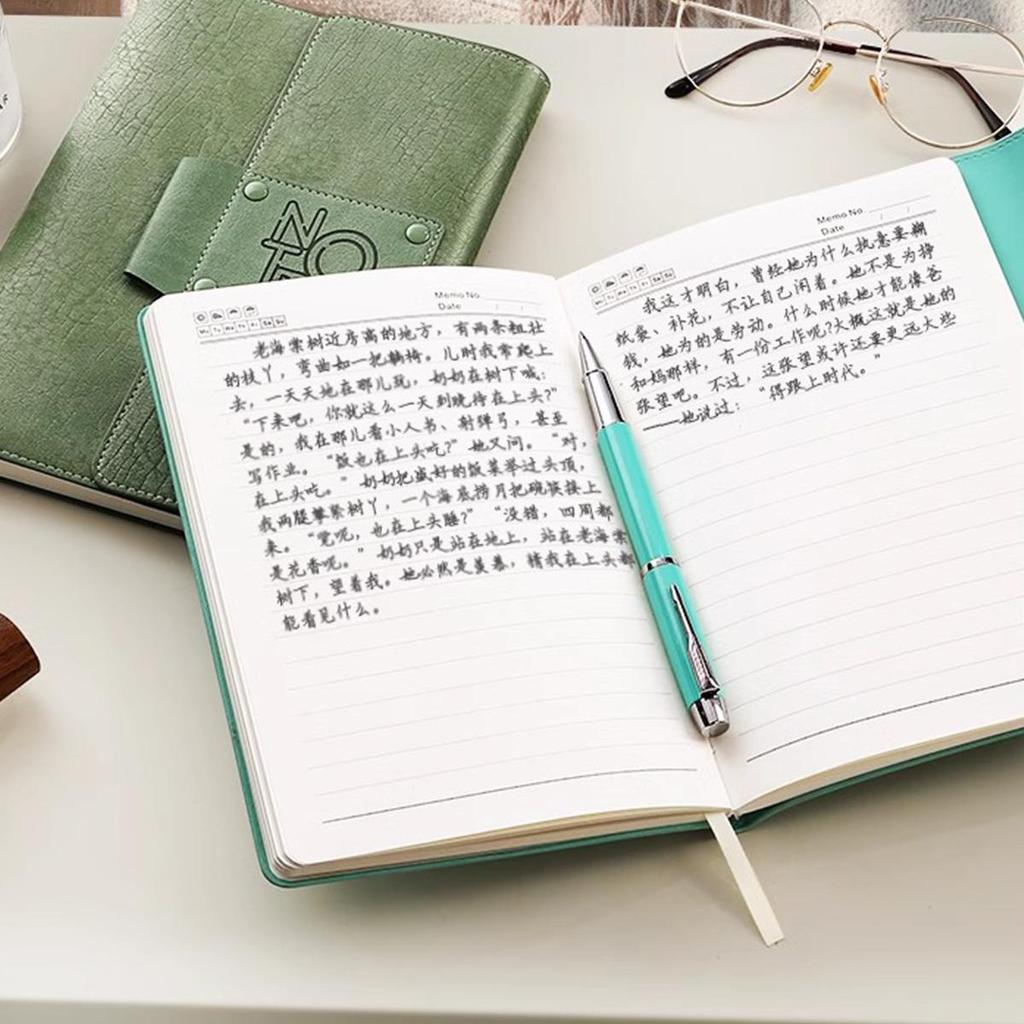 NOTE
Memo No.
Date
Mo Tu We Th Fr Sa Su
老海棠树近房高的地方，有两条粗壮
的枝丫，弯曲如一把躺椅。儿时我常爬上
去，一天天地在那儿玩，奶奶在树下喊：
“下来吧，你就这么一天到晚待在上头？”
是的，我在那儿看小人书、射弹弓，甚至
写作业。“饭也在上头吃？”她又问。“对，
在上头吃。”奶奶把盛好的饭菜举过头顶，
我两腿攀紧树丫，一个海底捞月把碗筷接上
来。“觉呢，也在上头睡？”“没错，四周都
是花香呢。”奶奶只是站在地上，站在老海棠
树下，望着我。她必然是羡慕，猜我在上头都
能看见什么。
Memo No.
Date
Mo Tu We Th Fr Sa Su
我这才明白，曾经她为什么执意要糊
纸袋、补花，不让自己闲着。她不是为挣
钱，她为的是劳动。什么时候她才能像爸
和妈那样，有一份工作呢？大概这就是她的
张望吧。不过，这张望或许还要更远大些
——她说过：“得跟上时代。”